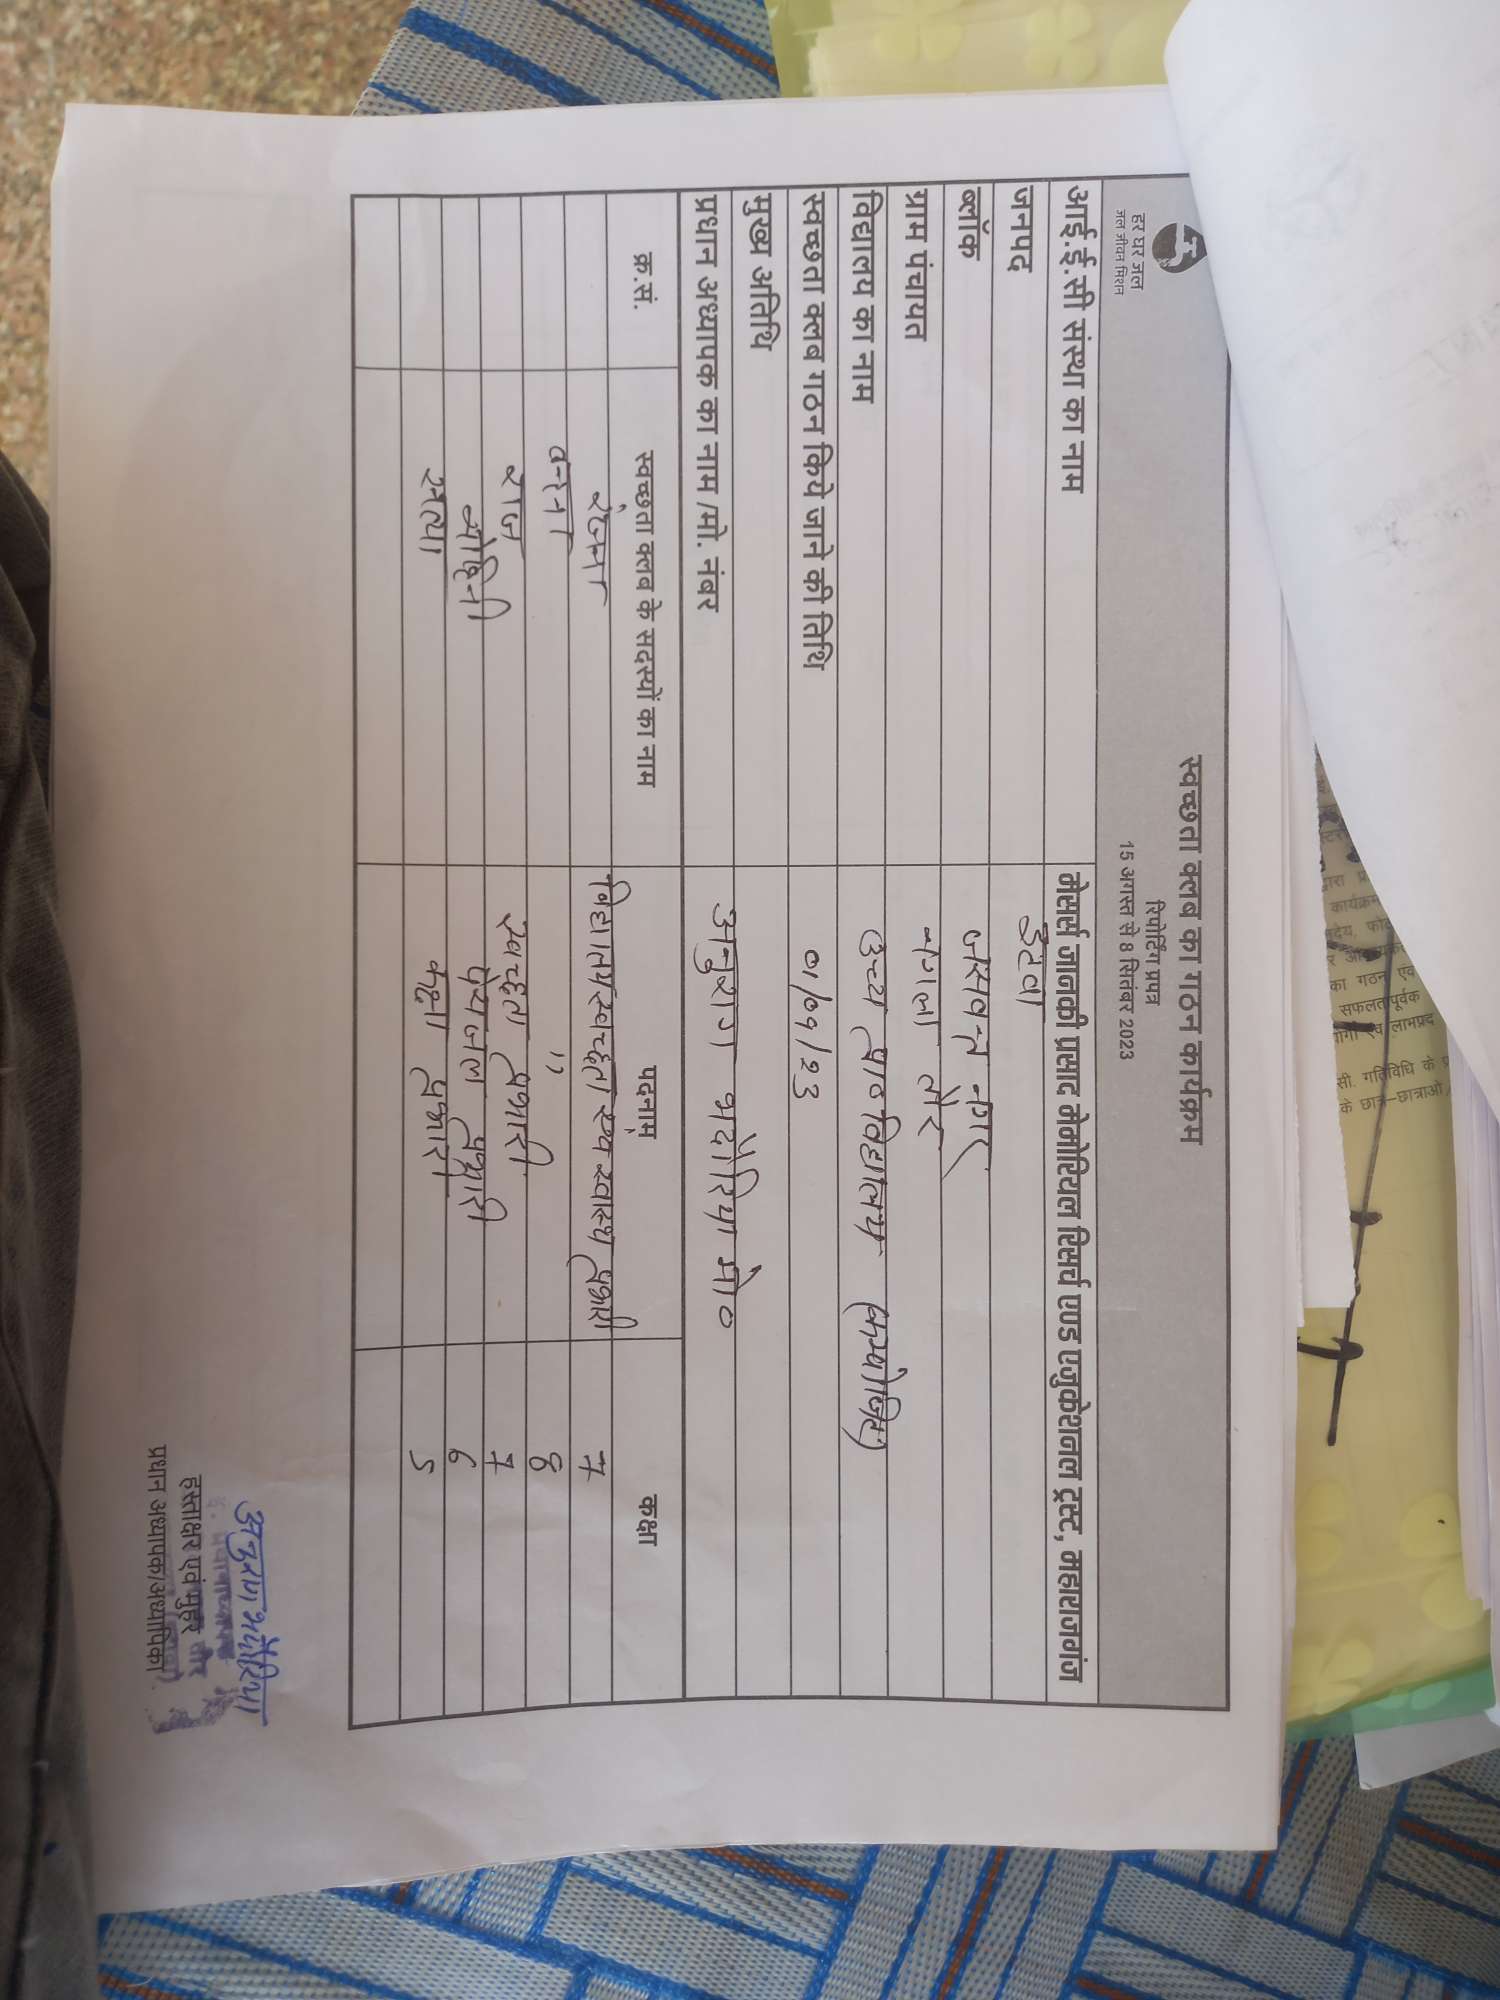 हर घर जल
जल जीवन मिशन
स्वच्छता क्लब का गठन कार्यक्रम
रिपोर्टिंग प्रपत्र
15 अगस्त से 8 सितंबर 2023
आई.ई.सी संस्था का नाम मेसर्स जानकी प्रसाद मेमोरियल रिसर्च एण्ड एजुकेशनल ट्रस्ट, महाराजगंज
जनपद इटावा
ब्लॉक जसवन्त नगर
ग्राम पंचायत नगला तौर
विद्यालय का नाम उच्च प्रा० विद्यालय (कम्पोजिट)
स्वच्छता क्लब गठन किये जाने की तिथि 01/09/23
मुख्य अतिथि
प्रधान अध्यापक का नाम /मो. नंबर अनुराग भदौरिया मो०
क्र.सं. स्वच्छता क्लब के सदस्यों का नाम पदनाम कक्षा
रंजना विद्यालय स्वच्छता एवं स्वास्थ्य प्रभारी 7
वन्दना " 8
राज स्वच्छता प्रभारी 7
मोहिनी पेयजल प्रभारी 6
सत्या कक्षा प्रभारी 5
अनुराग भदौरिया
हस्ताक्षर एवं मुहर
प्रधान अध्यापक/अध्यापिका